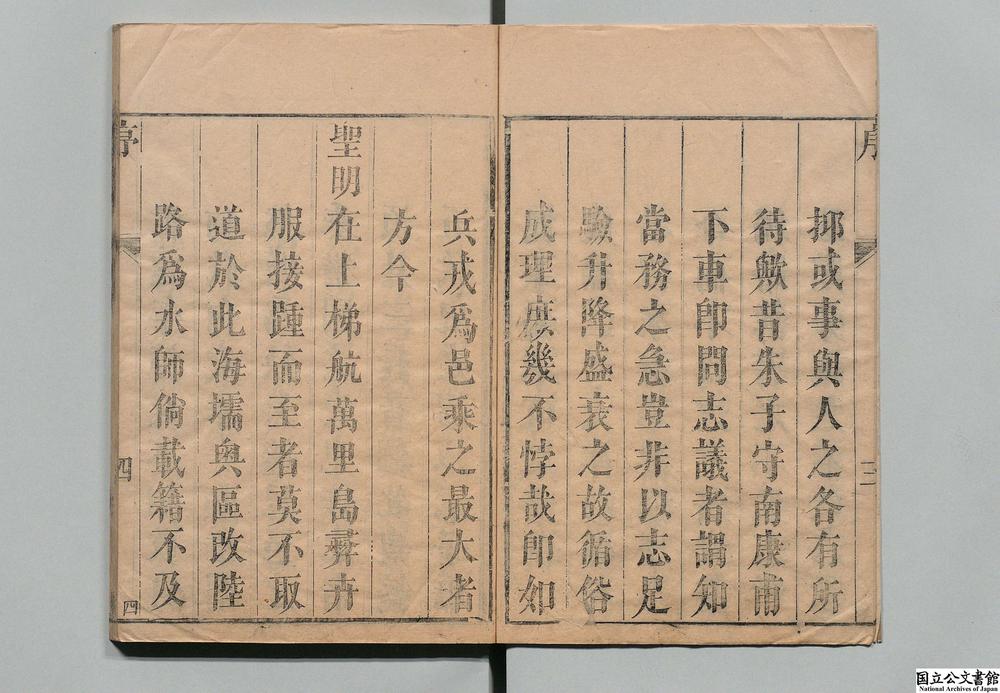 抑或事與人之各有所
待歟昔朱子守南康甫
下車卽問志議者謂知
當務之急豈非以志足
驗升降盛衰之故循俗
成理庶幾不悖哉卽如
兵戎爲邑乘之最大者
方今
聖明在上梯航萬里島彝卉
服接踵而至者莫不取
道於此海壖奥區改陸
路爲水師倘載籍不及
序
四
四
国立公文書館
National Archives of Japan